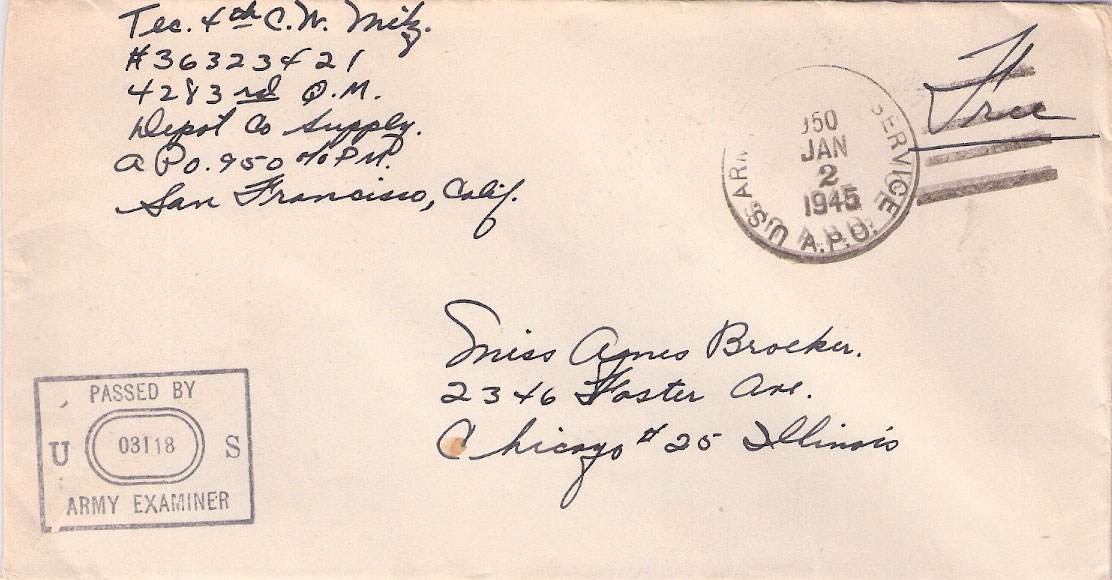 Tec. 4th C. W. Metz.
#36323421
4283rd Q.M.
Depot Co Supply.
A P.O. 950 c/o P.M.
San Francisco, Calif.
Free
ARM SERVICE
950
JAN
2
1945
U.S. A.P.O.
Miss Agnes Brocker.
2346 Foster Ave.
Chicago #25 Illinois
PASSED BY
U 03118 S
ARMY EXAMINER